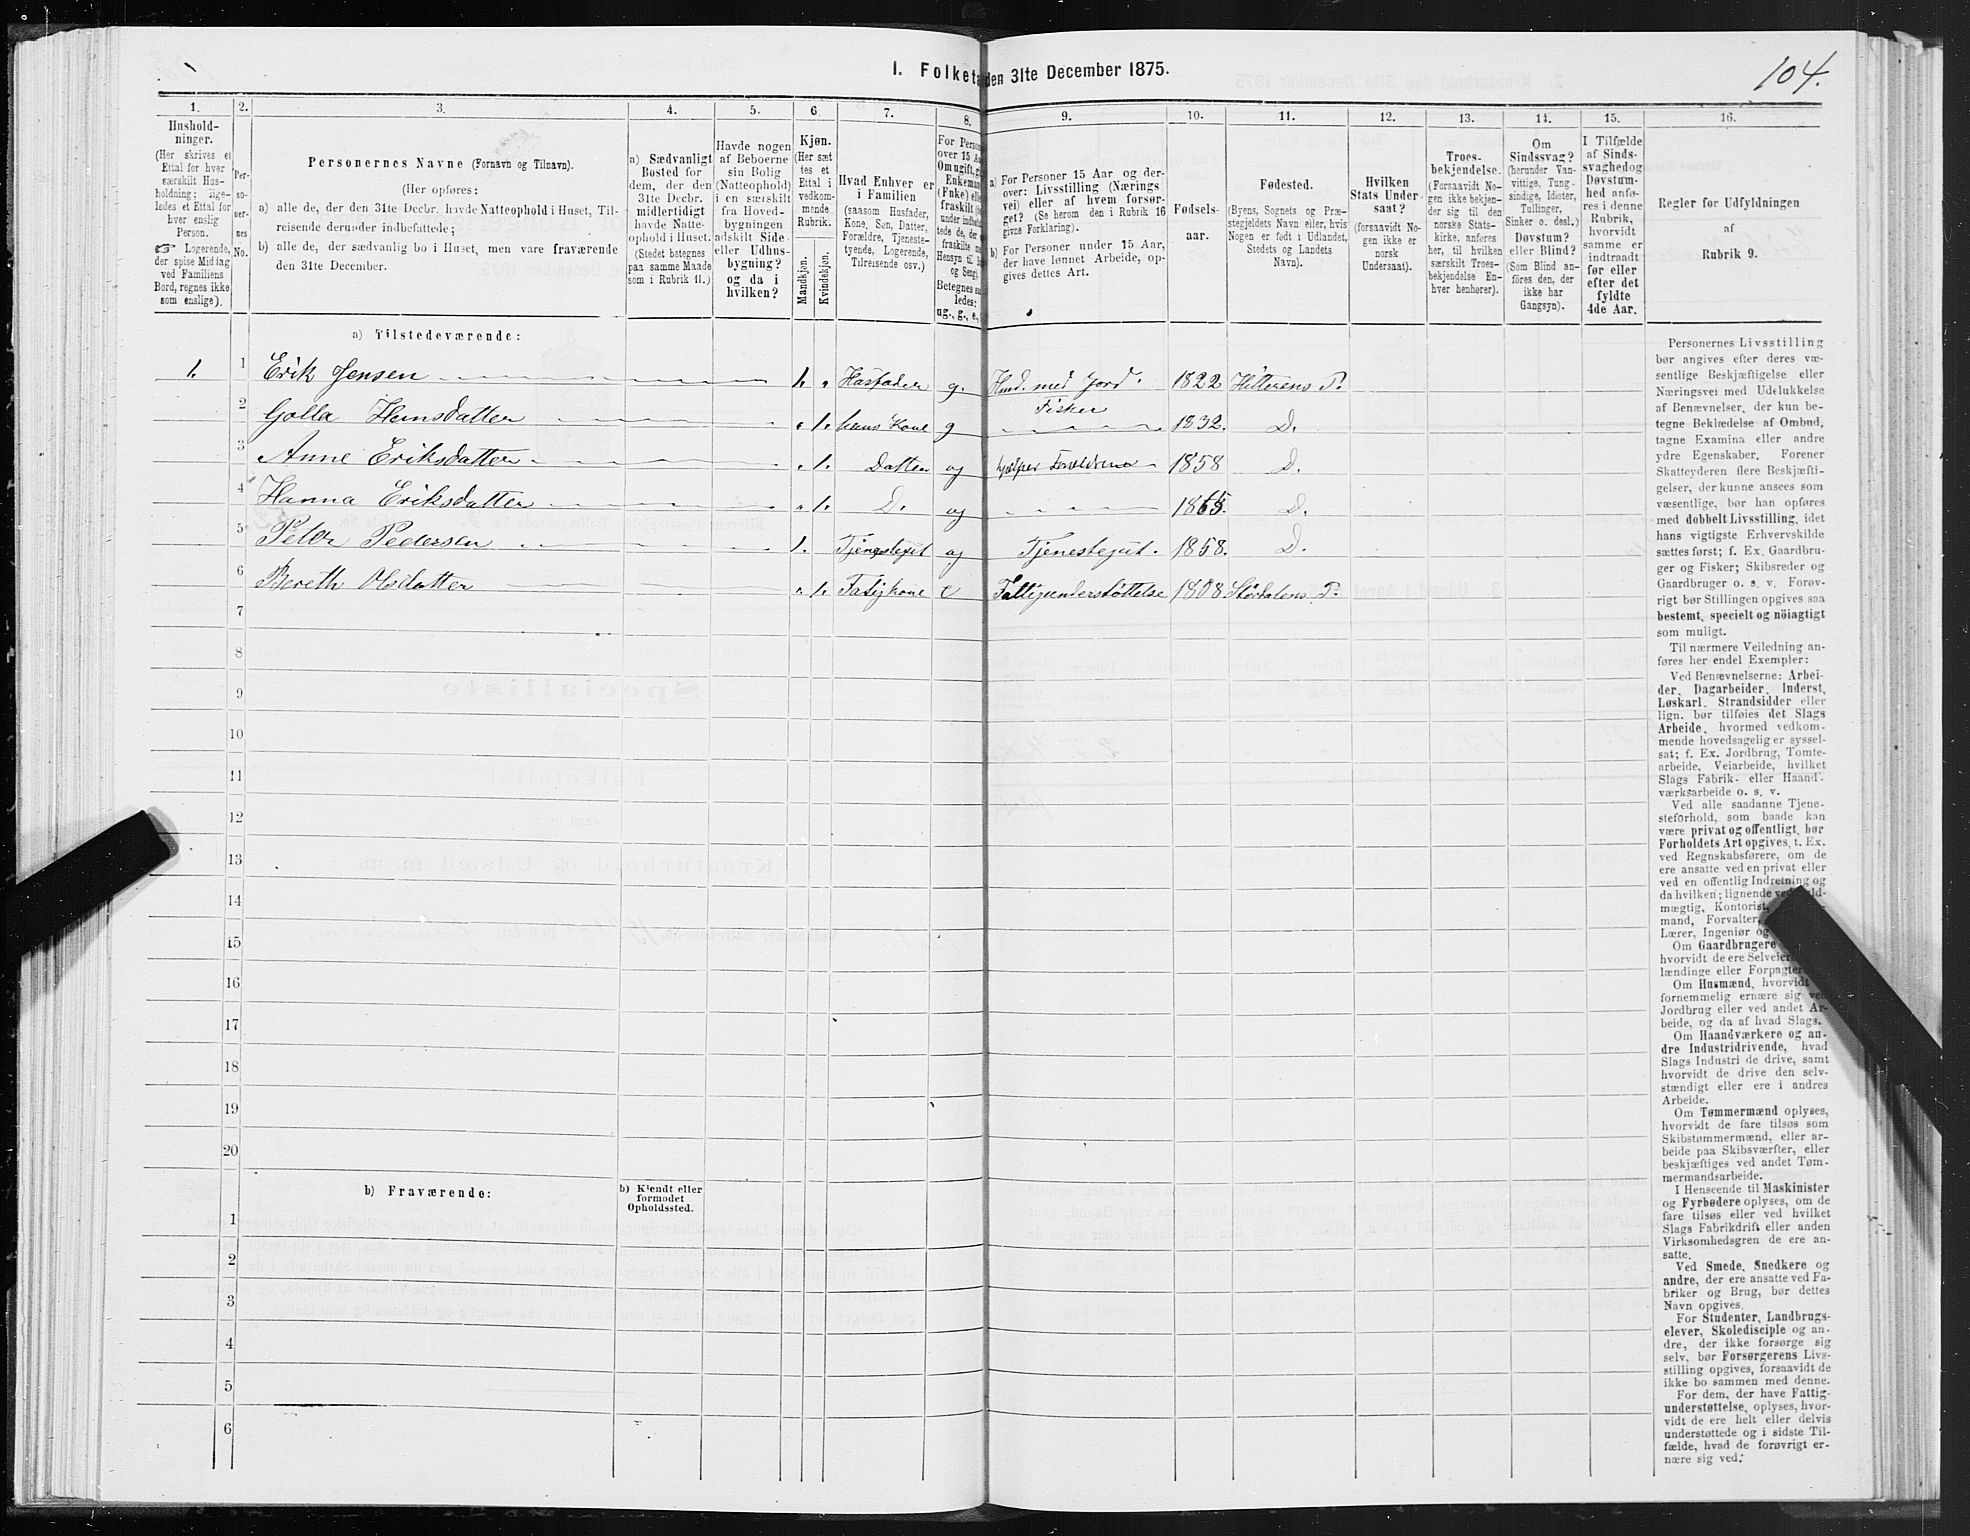 104.
I. Folketa den 31te December 1875.
1. 2. 3. 4. 5. 6. 7. 8. 9. 10. 11. 12. 13. 14. 15. 16.
Hushold-
ninger.
(Her skrives et
Ettal for hver
særskilt Hus-
holdning; lige-
ledes et Ettal for
hver enslig
Person.
☞ Logerende,
der spise Middag
ved Familiens
Bord, regnes ikke
som enslige).
Per-
so-
ner-
nes
No.
Personernes Navne (Fornavn og Tilnavn).
(Her opføres:
a) alle de, der den 31te Decbr. havde Natteophold i Huset, Til-
reisende derunder indbefattede;
b) alle de, der sædvanlig bo i Huset, men vare fraværende
den 31te December.
a) Sædvanligt
Bosted for
dem, der den
31te Decbr.
midlertidigt
havde Natte-
ophold i Huset.
(Stedet betegnes
paa samme Maade
som i Rubrik 11.)
Havde nogen
af Beboerne
sin Bolig
(Natteophold)
i en særskilt
fra Hoved-
bygningen
adskilt Side-
eller Udhus-
bygning?
og da i
hvilken?
Kjøn.
(Her sæt-
tes et
Ettal i
vedkom-
mende
Rubrik.
Mandkjøn.
Kvindekjøn.
Hvad Enhver er
i Familien
(saasom Husfader,
Kone, Søn, Datter,
Forældre, Tjeneste-
tyende, Logerende,
Tilreisende osv.)
For Person
over 15 Aa
Om ugift, gi
Enkeman
(Enke) elle
fraskilt (
under indbefat-
tede de, der
fraskilte
Hensyn til
og Seng).
Betegnes saa
ledes:
ug., g., e.,
a) For Personer 15 Aar og der-
over: Livsstilling (Nærings
vei) eller af hvem forsør-
get? (Se herom den i Rubrik 16
givne Forklaring).
b) For Personer under 15 Aar,
der have lønnet Arbeide, op-
gives dettes Art.
Fødsels-
aar.
Fødested.
(Byens, Sognets og Præ-
stegjeldets Navn eller, hvis
Nogen er født i Udlandet,
Stedets og Landets
Navn).
Hvilken
Stats Under-
saat?
(forsaavidt No-
gen ikke er
norsk
Undersaat).
Troes-
bekjendelse.
(Forsaavidt No-
gen ikke bekjen-
der sig til den
norske Stats-
kirke, anføres
her, til hvilken
særskilt Troes-
bekjendelse En-
hver henhører).
Om
Sindssvag?
(herunder Van-
vittige, Tung-
sindige, Idioter,
Tullinger,
Sinker o. desl.)
Døvstum?
eller Blind?
(Som Blind an-
føres den, der
ikke har
Gangsyn).
I Tilfælde
af Sinds-
svaghed og
Døvstum-
hed anfø-
res i denne
Rubrik,
hvorvidt
samme er
indtraadt
før eller
efter det
fyldte
4de Aar.
Regler for Udfyldningen
af
Rubrik 9.
a) Tilstedeværende:
1. 1 Erik Jensen 1. Husfader g. Husd. med Jord. Fisker 1822 Hitterens P.
2 Golla Hansdatter 1. hans Kone g 1832. D.
3 Anne Eriksdatter 1. Datter ug hjelper Forældrene 1858 D.
4 Hanna Eriksdatter 1. D. ug 1865. D.
5 Peter Pedersen 1. Tjenestegut ug Tjenestegut. 1858. D.
6 Bereth Olsdatter 1. Fatigkone e Fattigunderstøttelse 1808 Stördalens P.
7
8
9
10
11
12
13
14
15
16
17
18
19
20
b) Fraværende:
b) Kjendt eller
formodet
Opholdssted.
1
2
3
4
5
6
Personernes Livsstilling
bør angives efter deres væ-
sentlige Beskjæftigelse eller
Næringsvei med Udelukkelse
af Benævnelser, der kun be-
tegne Beklædelse af Ombud,
tagne Examina eller andre
ydre Egenskaber. Forener
Skatteyderen flere Beskjæfti-
gelser, der kunne ansees som
væsentlige, bør han opføres
med dobbelt Livsstilling, idet
hans vigtigste Erhvervskilde
sættes først; f. Ex. Gaardbru-
ger og Fisker; Skibsreder og
Gaardbruger o. s. v. Forøv-
rigt bør Stillingen opgives saa
bestemt, specielt og nöiagtigt
som muligt.
Til nærmere Veiledning an-
føres her endel Exempler:
Ved Benævnelserne: Arbei-
der, Dagarbeider, Inderst,
Løskarl, Strandsidder eller
lign. bør tilføies det Slags
Arbeide, hvormed vedkom-
mende hovedsagelig er syssel-
sat; f. Ex. Jordbrug, Tomte-
arbeide, Veiarbeide, hvilket
Slags Fabrik- eller Haand-
værksarbeide o. s. v.
Ved alle saadanne Tjene-
steforhold, som baade kan
være privat og offentligt, bør
Forholdets Art opgives, t. Ex.
ved Regnskabsførere, om de
ere ansatte ved en privat eller
ved en offentlig Indretning og
da hvilken; lignende ved
mægtig, Kontorist,
mand, Forvalter,
Lærer, Ingeniør og
Om Gaardbrugere
hvorvidt de ere Selveiere
lændinge eller Forpagtere
Om Husmænd, hvorvidt
fornemmelig ernære sig ved
Jordbrug eller ved andet Ar-
beide, og da af hvad Slags.
Om Haandværkere og an-
dre Industridrivende, hvad
Slags Industri de drive, samt
hvorvidt de drive den selv-
stændigt eller ere i andres
Arbeide.
Om Tømmermænd oplyses,
hvorvidt de fare tilsøs som
Skibstømmermænd, eller ar-
beide paa Skibsværfter, eller
beskjæftiges ved andet Tøm-
mermandsarbeide.
I Henseende til Maskinister
og Fyrbødere oplyses, om de
fare tilsøs eller ved hvilket
Slags Fabrikdrift eller anden
Virksomhedsgren de ere an-
satte.
Ved Smede, Snedkere og
andre, der ere ansatte ved Fa-
briker og Brug, bør dettes
Navn opgives.
For Studenter, Landbrugs-
elever, Skoledisciple og an-
dre, der ikke forsørge sig
selv, bør Forsørgerens Livs-
stilling opgives, forsaavidt de
ikke bo sammen med denne.
For dem, der have Fattig-
understøttelse, oplyses, hvor-
vidt de ere helt eller delvis
understøttede og i sidste Til-
fælde, hvad de forøvrigt er-
nære sig ved.